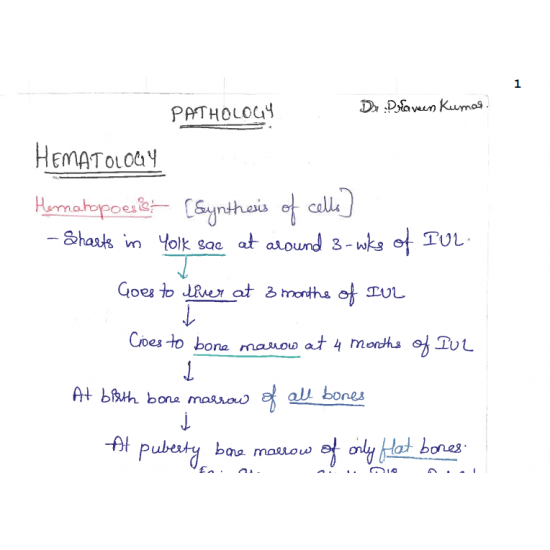 1
PATHOLOGY
Dr. Praveen Kumar.
HEMATOLOGY
Hematopoesis:- [Synthesis of cells]
- Starts in yolk sac at around 3-wks of IUL.
Goes to liver at 3 months of IUL
Goes to bone marrow at 4 months of IUL
At birth bone marrow of all bones
At puberty bone marrow of only flat bones.